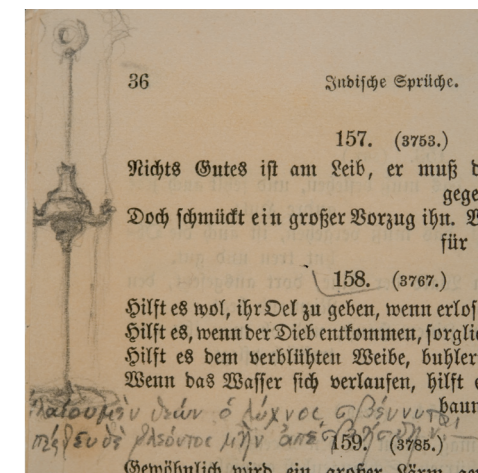 36 Indische Sprüche.
157. (3753.)
Nichts Gutes ist am Leib, er muß d
gege
Doch schmückt ein großer Vorzug ihn.
für
158. (3767.)
Hilft es wol, ihr Oel zu geben, wenn erlos
Hilft es, wenn der Dieb entkommen, sorgli
Hilft es dem verblühten Weibe, buhler
Wenn das Wasser sich verlaufen, hilft e
baum
ἐλαίου μὲν ὁ λύχνος σβέννυται,
159. (3785.)
Gewöhnlich wird ein großer Lärm ge